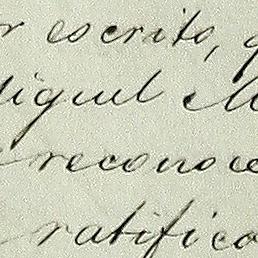 r escrito, q
Miguel M
reconoce
ratifico